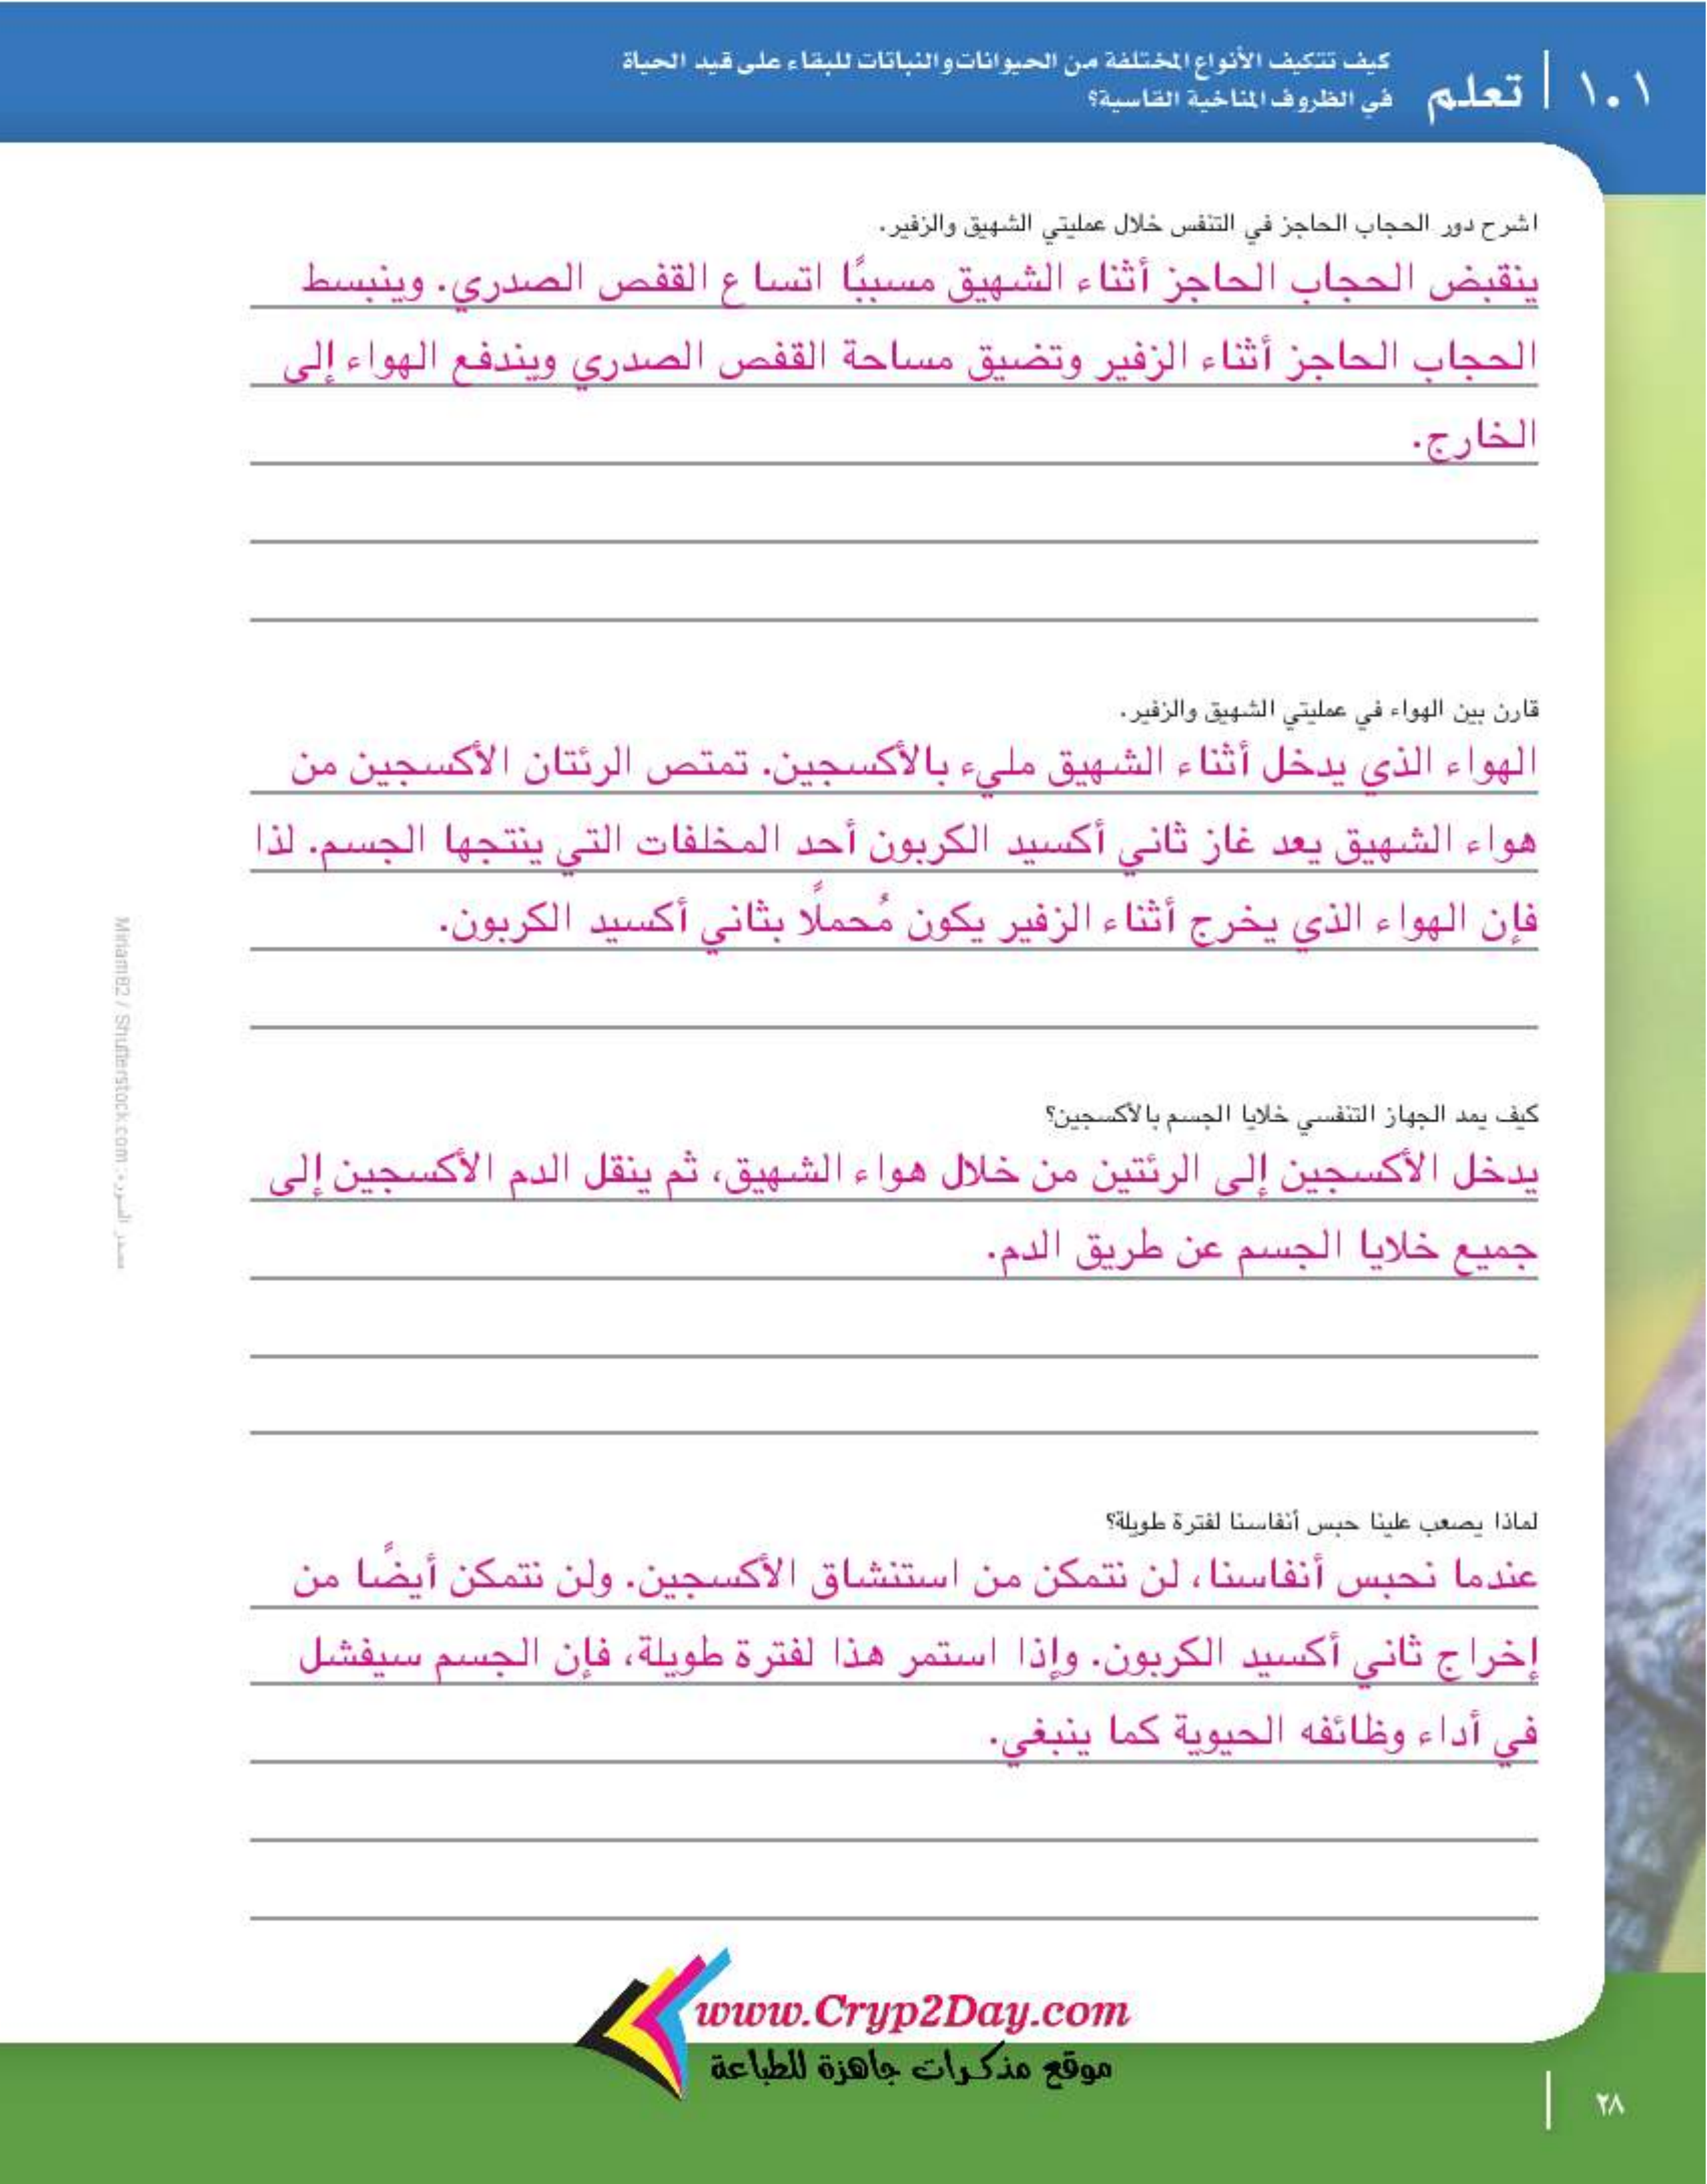 ١.١ تعلم
كيف تتكيف الأنواع المختلفة من الحيوانات والنباتات للبقاء على قيد الحياة
في الظروف المناخية القاسية؟
اشرح دور الحجاب الحاجز في التنفس خلال عمليتي الشهيق والزفير.
ينقبض الحجاب الحاجز أثناء الشهيق مسببًا اتساع القفص الصدري. وينبسط
الحجاب الحاجز أثناء الزفير وتضيق مساحة القفص الصدري ويندفع الهواء إلى
الخارج.
قارن بين الهواء في عمليتي الشهيق والزفير.
الهواء الذي يدخل أثناء الشهيق مليء بالأكسجين. تمتص الرئتان الأكسجين من
هواء الشهيق يعد غاز ثاني أكسيد الكربون أحد المخلفات التي ينتجها الجسم. لذا
فإن الهواء الذي يخرج أثناء الزفير يكون مُحملًا بثاني أكسيد الكربون.
كيف يمد الجهاز التنفسي خلايا الجسم بالأكسجين؟
يدخل الأكسجين إلى الرئتين من خلال هواء الشهيق، ثم ينقل الدم الأكسجين إلى
جميع خلايا الجسم عن طريق الدم.
لماذا يصعب علينا حبس أنفاسنا لفترة طويلة؟
عندما نحبس أنفاسنا، لن نتمكن من استنشاق الأكسجين. ولن نتمكن أيضًا من
إخراج ثاني أكسيد الكربون. وإذا استمر هذا لفترة طويلة، فإن الجسم سيفشل
في أداء وظائفه الحيوية كما ينبغي.
مصدر الصورة: Miriam82 / Shutterstock.com
www.Cryp2Day.com
موقع مذكرات جاهزة للطباعة
٢٨